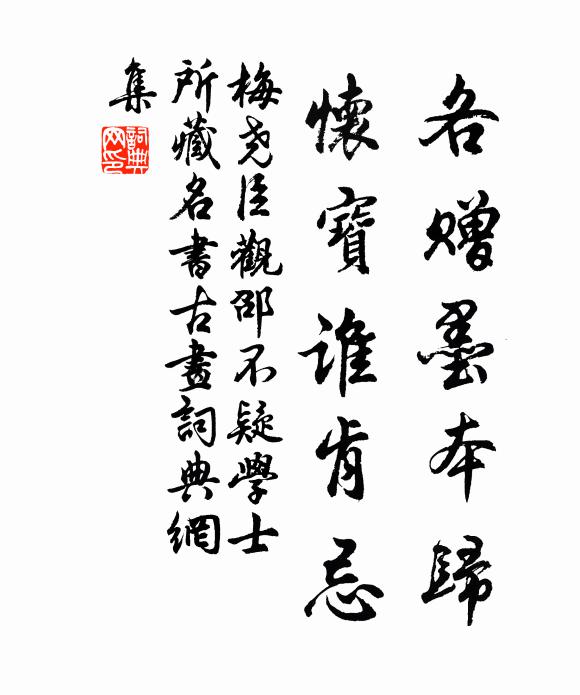 各贈墨本歸
懷寶誰肯忌
梅堯臣觀邵不疑學士
所藏名書古畫詞典網
集
詞典
网印